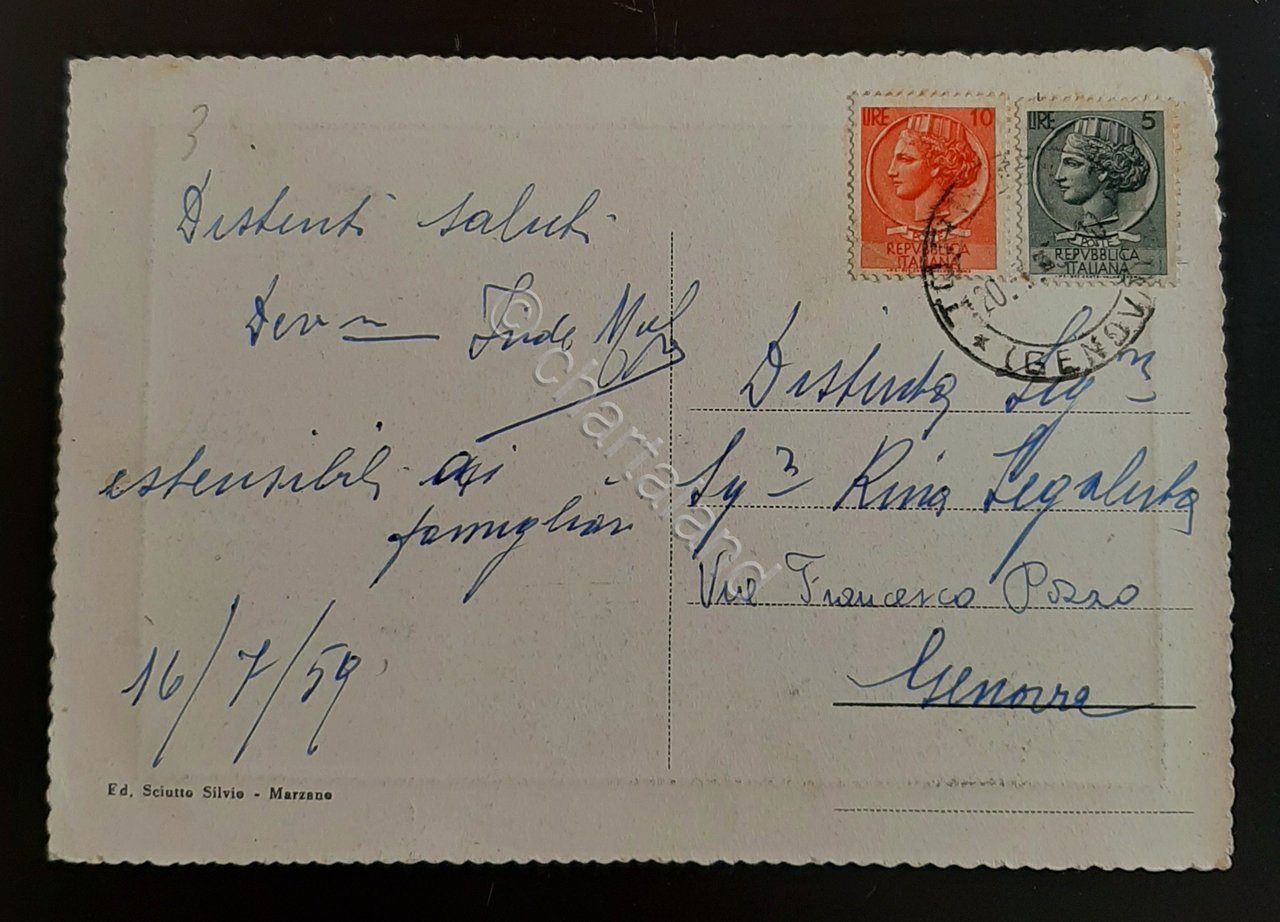 3
LIRE 10
POSTE
REPVBBLICA
ITALIANA
LIRE 5
POSTE
REPVBBLICA
ITALIANA
20.
(GENOVA)
Distinti saluti
Dev m
estensibili ai
famigliari
16/7/59
Distinta Sig
Rina Segaluta
Via Francesco Pozzo
Genova
Ed. Sciutto Silvio - Marzano
© chartaland